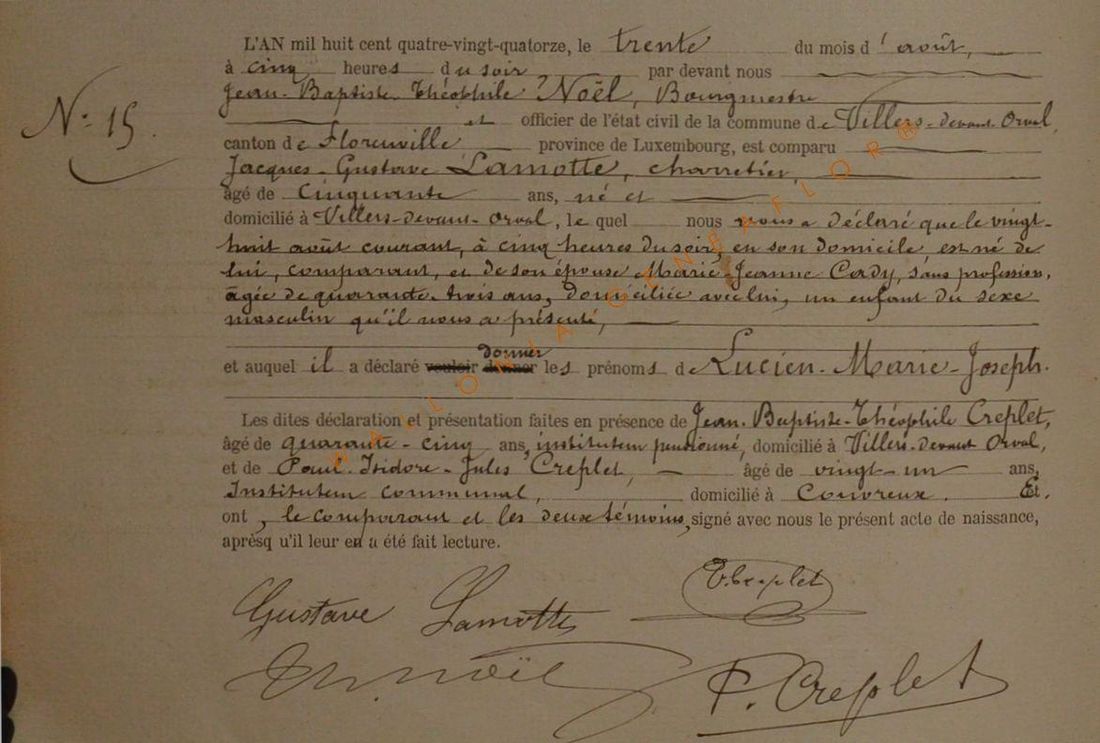 L'AN mil huit cent quatre-vingt-quatorze, le trente du mois d'août,
à cinq heures du soir par devant nous
Jean-Baptiste-Théophile Noël, Bourgmestre
N° 15
et officier de l'état civil de la commune de Villers-devant-Orval,
canton de Florenville province de Luxembourg, est comparu
Jacques-Gustave Lamotte, charretier,
âgé de cinquante ans, né et
domicilié à Villers-devant-Orval, le quel nous nous a déclaré que le vingt-
huit août courant, à cinq heures du soir, en son domicile, est né de
lui, comparant, et de son épouse Marie Jeanne Cady, sans profession,
agée de quarante-trois ans, domiciliée avec lui, un enfant du sexe
masculin qu'il nous a présenté,
donner
et auquel il a déclaré vouloir donner les prénoms de Lucien-Marie-Joseph.
Les dites déclaration et présentation faites en présence de Jean-Baptiste-Théophile Creplet,
âgé de quarante-cinq ans, instituteur pensionné, domicilié à Villers-devant Orval,
et de Paul-Isidore-Jules Creplet, âgé de vingt-un ans,
Instituteur communal, domicilié à Couvreux. Et
ont, le comparant et les deux témoins, signé avec nous le présent acte de naissance,
aprèsq u'il leur en a été fait lecture.
T. Creplet
Gustave Lamotte
Th. Noël
P. Creplet